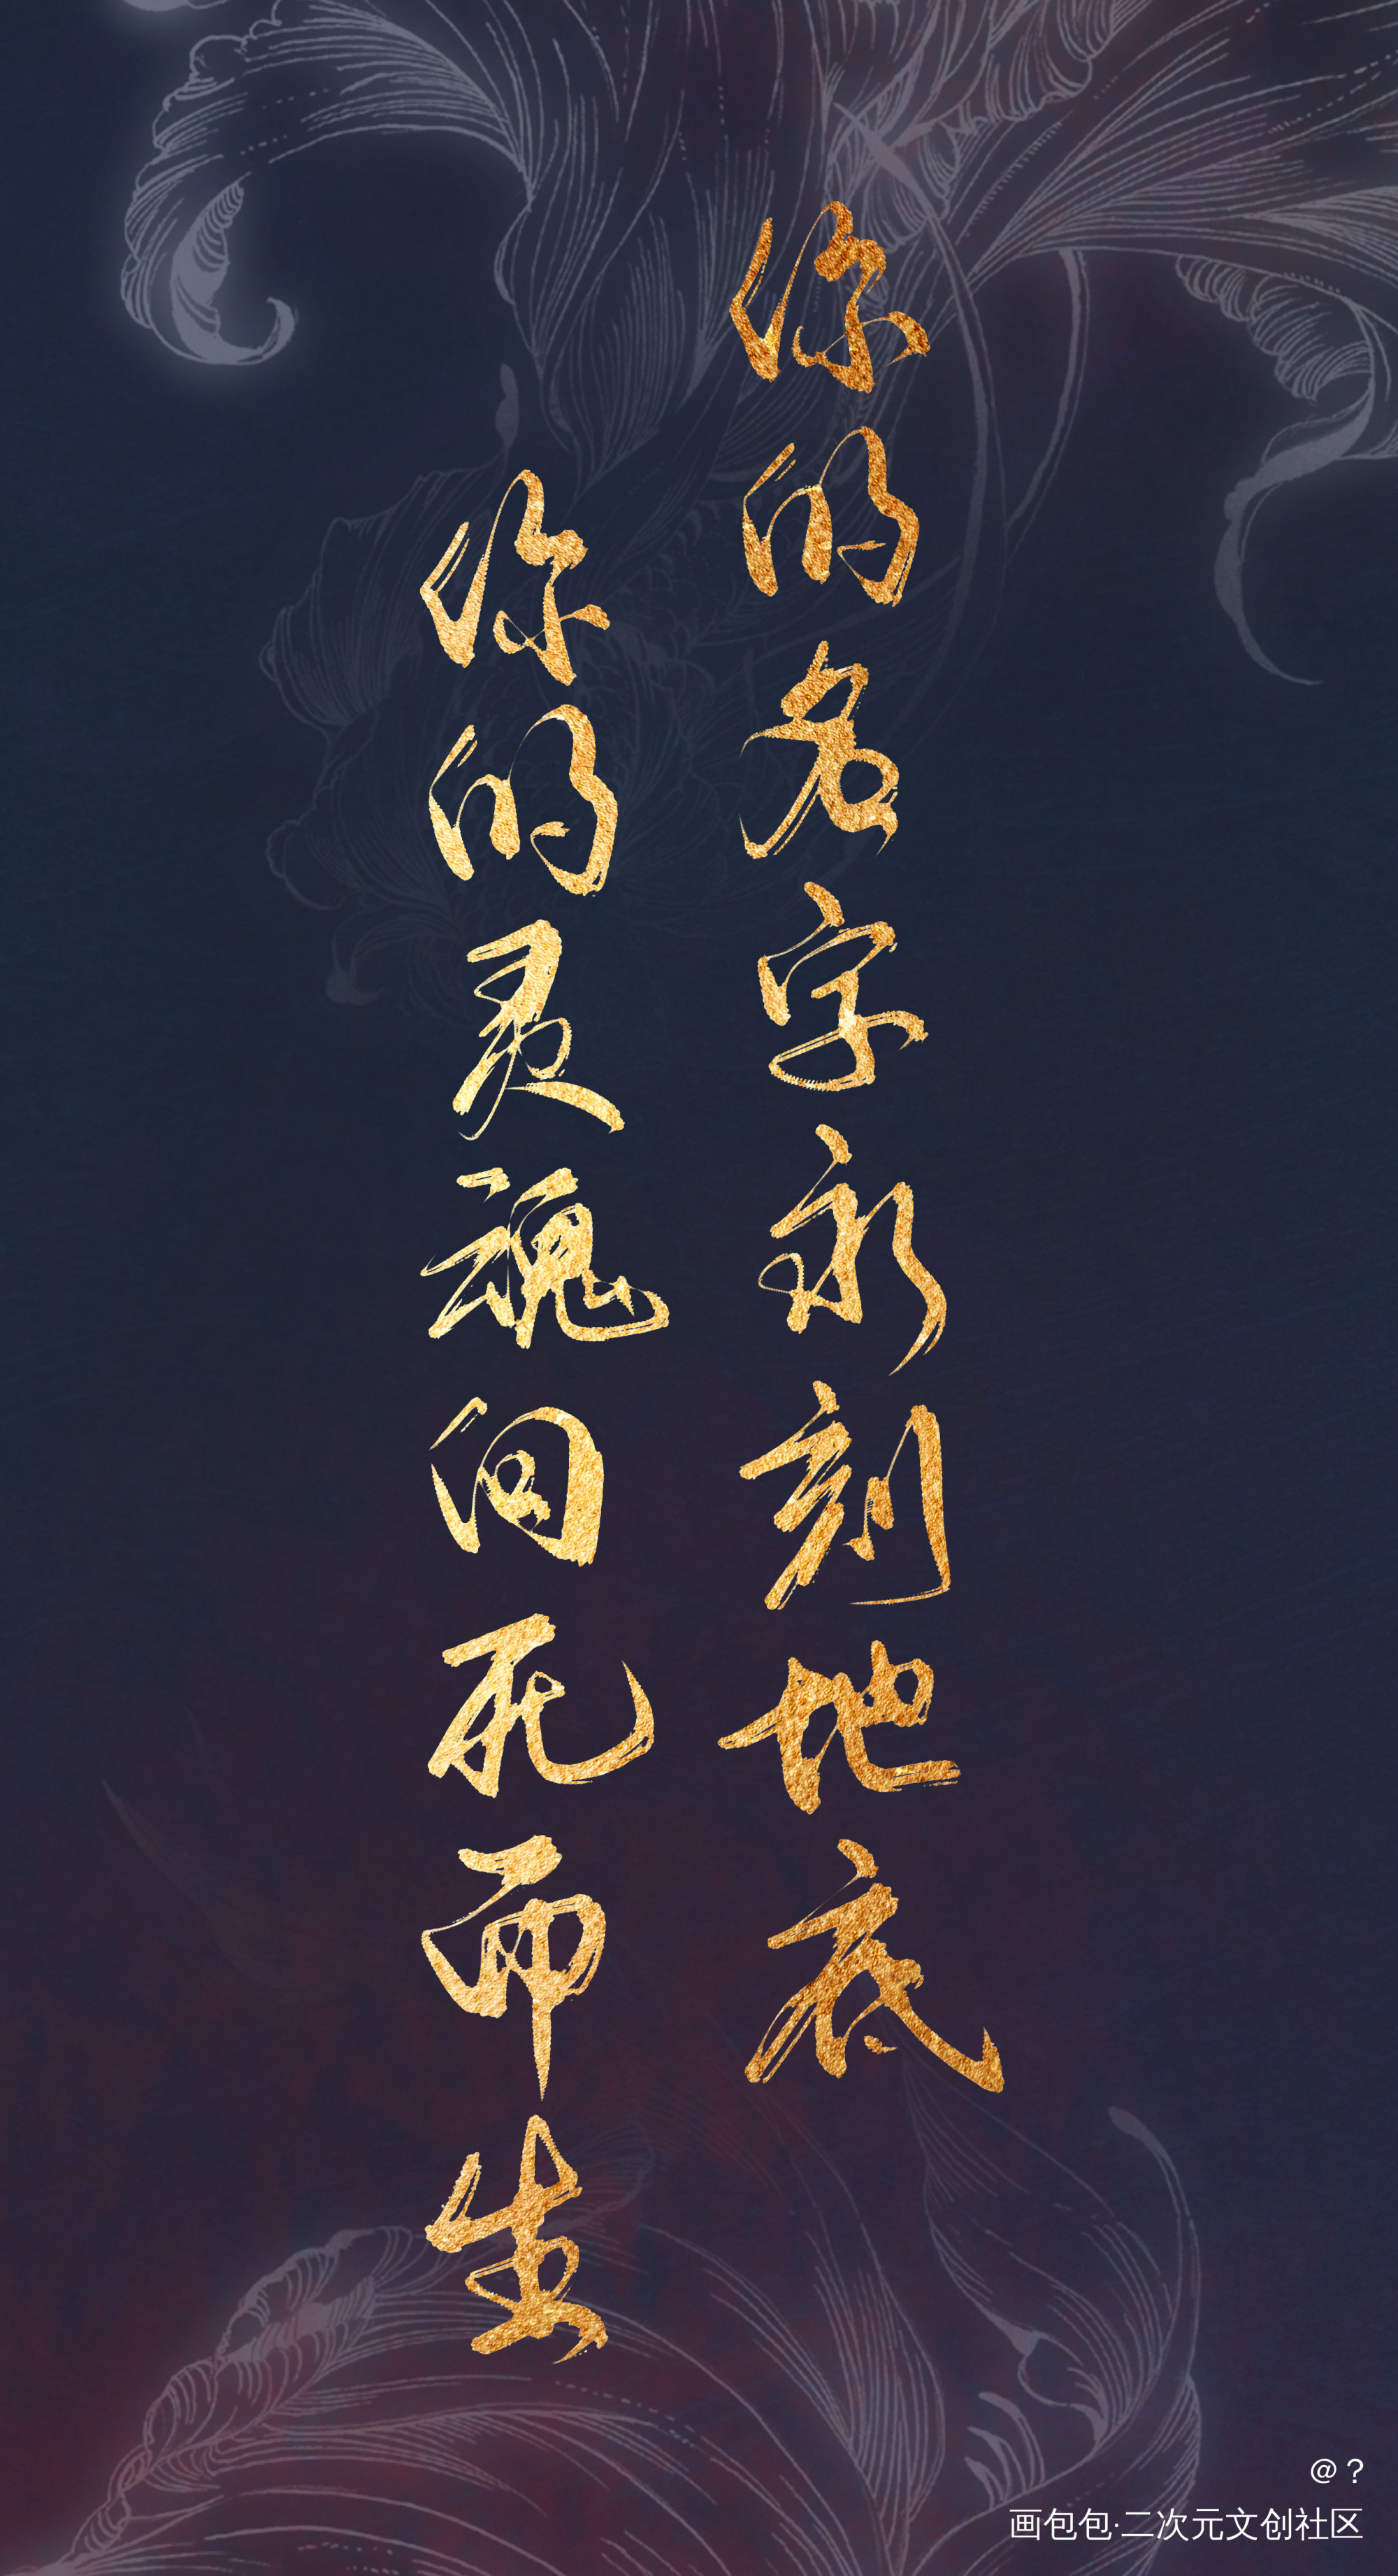 你的名字永刻地底
你的灵魂向死而生
@？
画包包·二次元文创社区